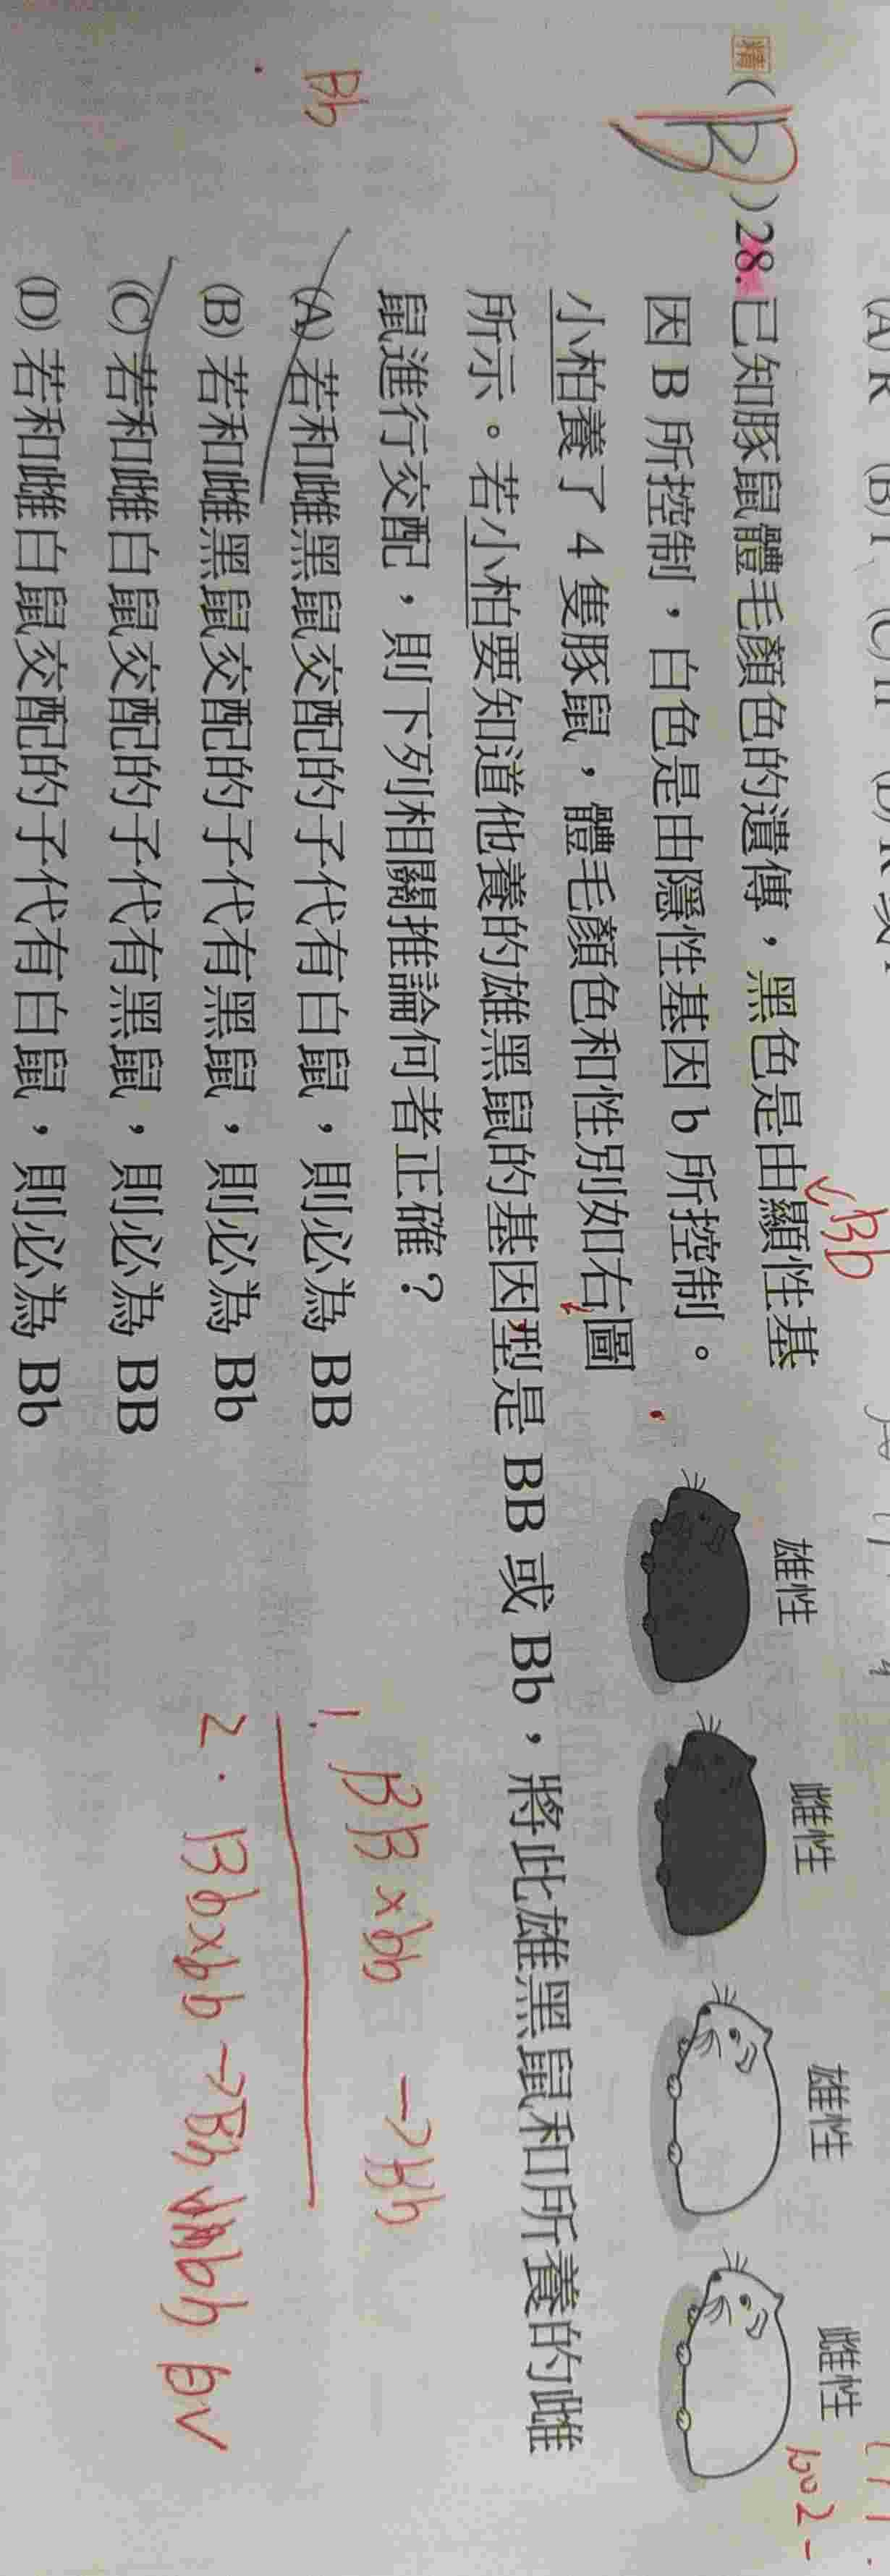 (A) R (B) I (C)
精 ( B ) 28. 已知豚鼠體毛顏色的遺傳，黑色是由顯性基
Bb
因 B 所控制，白色是由隱性基因 b 所控制。
小柏養了 4 隻豚鼠，體毛顏色和性別如右圖
雄性 雌性 雄性 雌性
所示。若小柏要知道他養的雄黑鼠的基因型是 BB 或 Bb，將此雄黑鼠和所養的雌
鼠進行交配，則下列相關推論何者正確？
Bb
(A) 若和雌黑鼠交配的子代有白鼠，則必為 BB
(B) 若和雌黑鼠交配的子代有黑鼠，則必為 Bb
(C) 若和雌白鼠交配的子代有黑鼠，則必為 BB
(D) 若和雌白鼠交配的子代有白鼠，則必為 Bb
1. BB × bb → Bb
2. Bb × bb → Bb bb